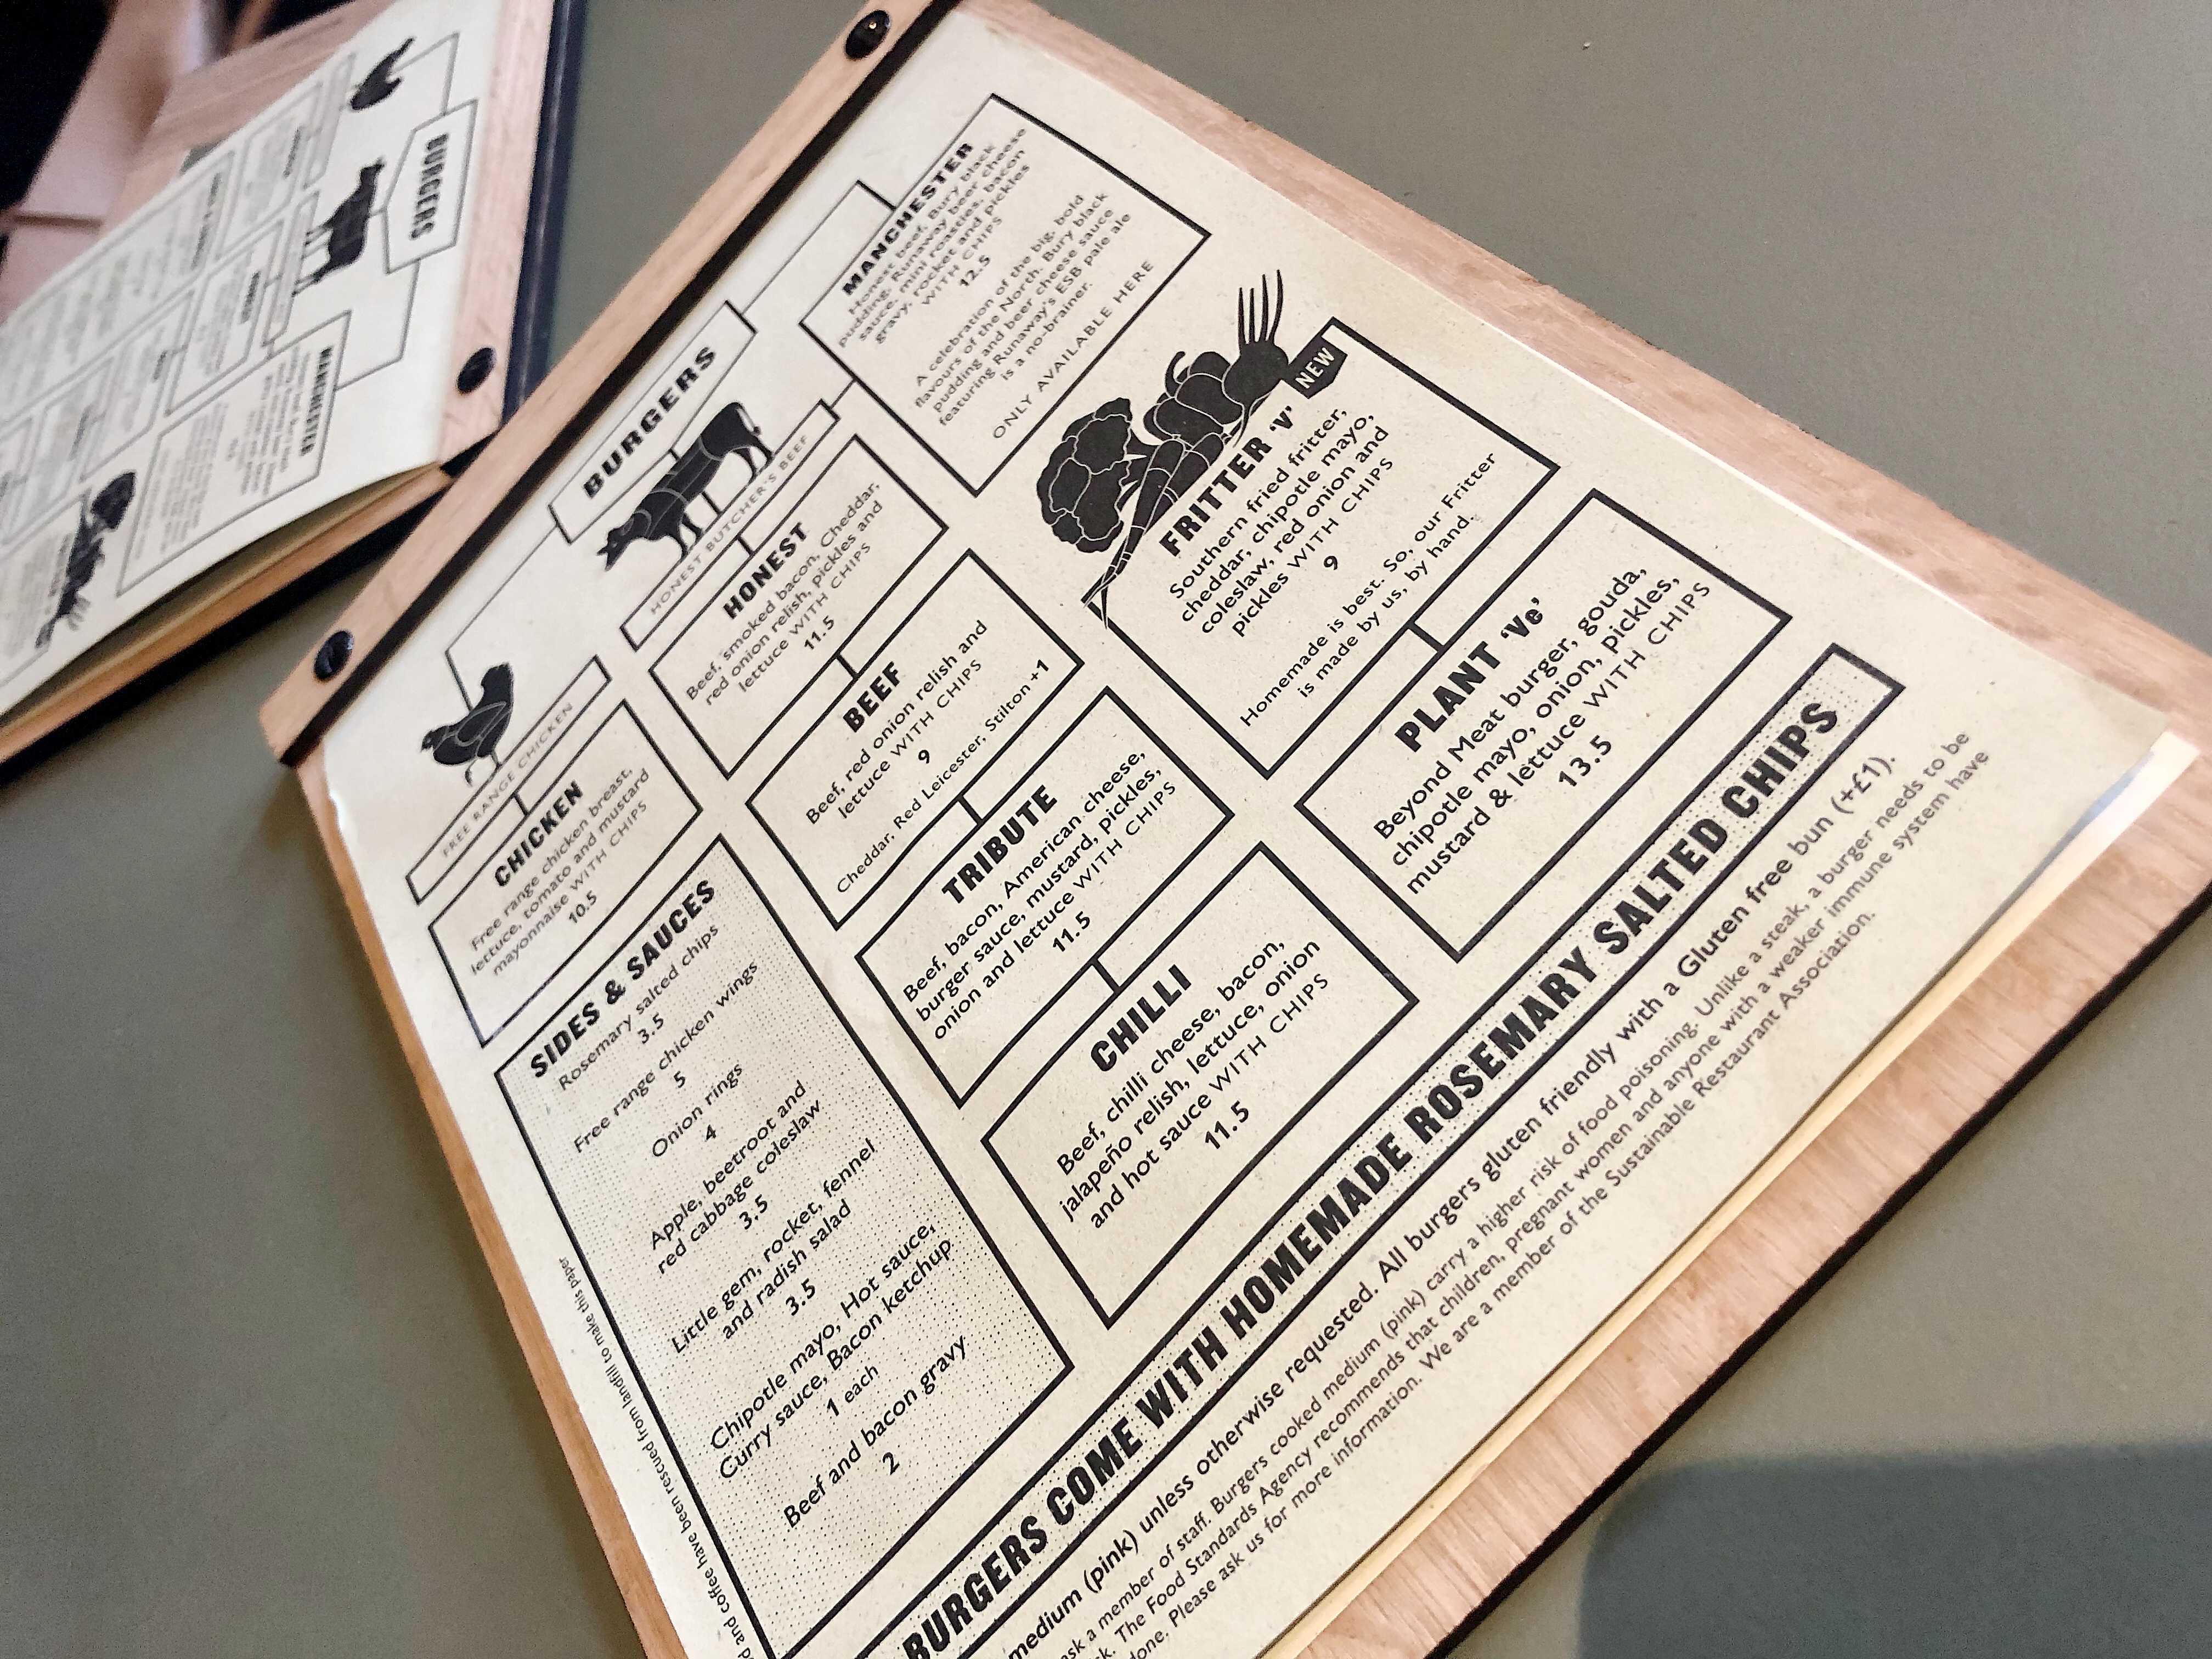 BURGERS
FREE RANGE CHICKEN
CHICKEN
Free range chicken breast,
lettuce, tomato and mustard
mayonnaise WITH CHIPS
10.5
SIDES & SAUCES
Rosemary salted chips
3.5
Free range chicken wings
5
Onion rings
4
Apple, beetroot and
red cabbage coleslaw
3.5
Little gem, rocket, fennel
and radish salad
3.5
Chipotle mayo, Hot sauce,
Curry sauce, Bacon ketchup
1 each
Beef and bacon gravy
2
HONEST BUTCHER'S BEEF
HONEST
Beef, smoked bacon, Cheddar,
red onion relish, pickles and
lettuce WITH CHIPS
11.5
BEEF
Beef, red onion relish and
lettuce WITH CHIPS
9
Cheddar, Red Leicester, Stilton +1
TRIBUTE
Beef, bacon, American cheese,
burger sauce, mustard, pickles,
onion and lettuce WITH CHIPS
11.5
CHILLI
Beef, chilli cheese, bacon,
jalapeño relish, lettuce, onion
and hot sauce WITH CHIPS
11.5
MANCHESTER
Honest beef, Bury black
pudding, Runaway beer cheese
sauce, mini roasties, bacon
gravy, rocket and pickles
WITH CHIPS
12.5
A celebration of the big, bold
flavours of the North. Bury black
pudding and beer cheese sauce
featuring Runaway's ESB pale ale
is a no-brainer.
ONLY AVAILABLE HERE
NEW
FRITTER 'V'
Southern fried fritter,
cheddar, chipotle mayo,
coleslaw, red onion and
pickles WITH CHIPS
9
Homemade is best. So, our Fritter
is made by us, by hand.
PLANT 'Ve'
Beyond Meat burger, gouda,
chipotle mayo, onion, pickles,
mustard & lettuce WITH CHIPS
13.5
BURGERS COME WITH HOMEMADE ROSEMARY SALTED CHIPS
medium (pink) unless otherwise requested. All burgers gluten friendly with a Gluten free bun (+£1).
ask a member of staff. Burgers cooked medium (pink) carry a higher risk of food poisoning. Unlike a steak, a burger needs to be
The Food Standards Agency recommends that children, pregnant women and anyone with a weaker immune system have
done. Please ask us for more information. We are a member of the Sustainable Restaurant Association.
and coffee have been rescued from landfill to make this paper
BURGERS
MANCHESTER